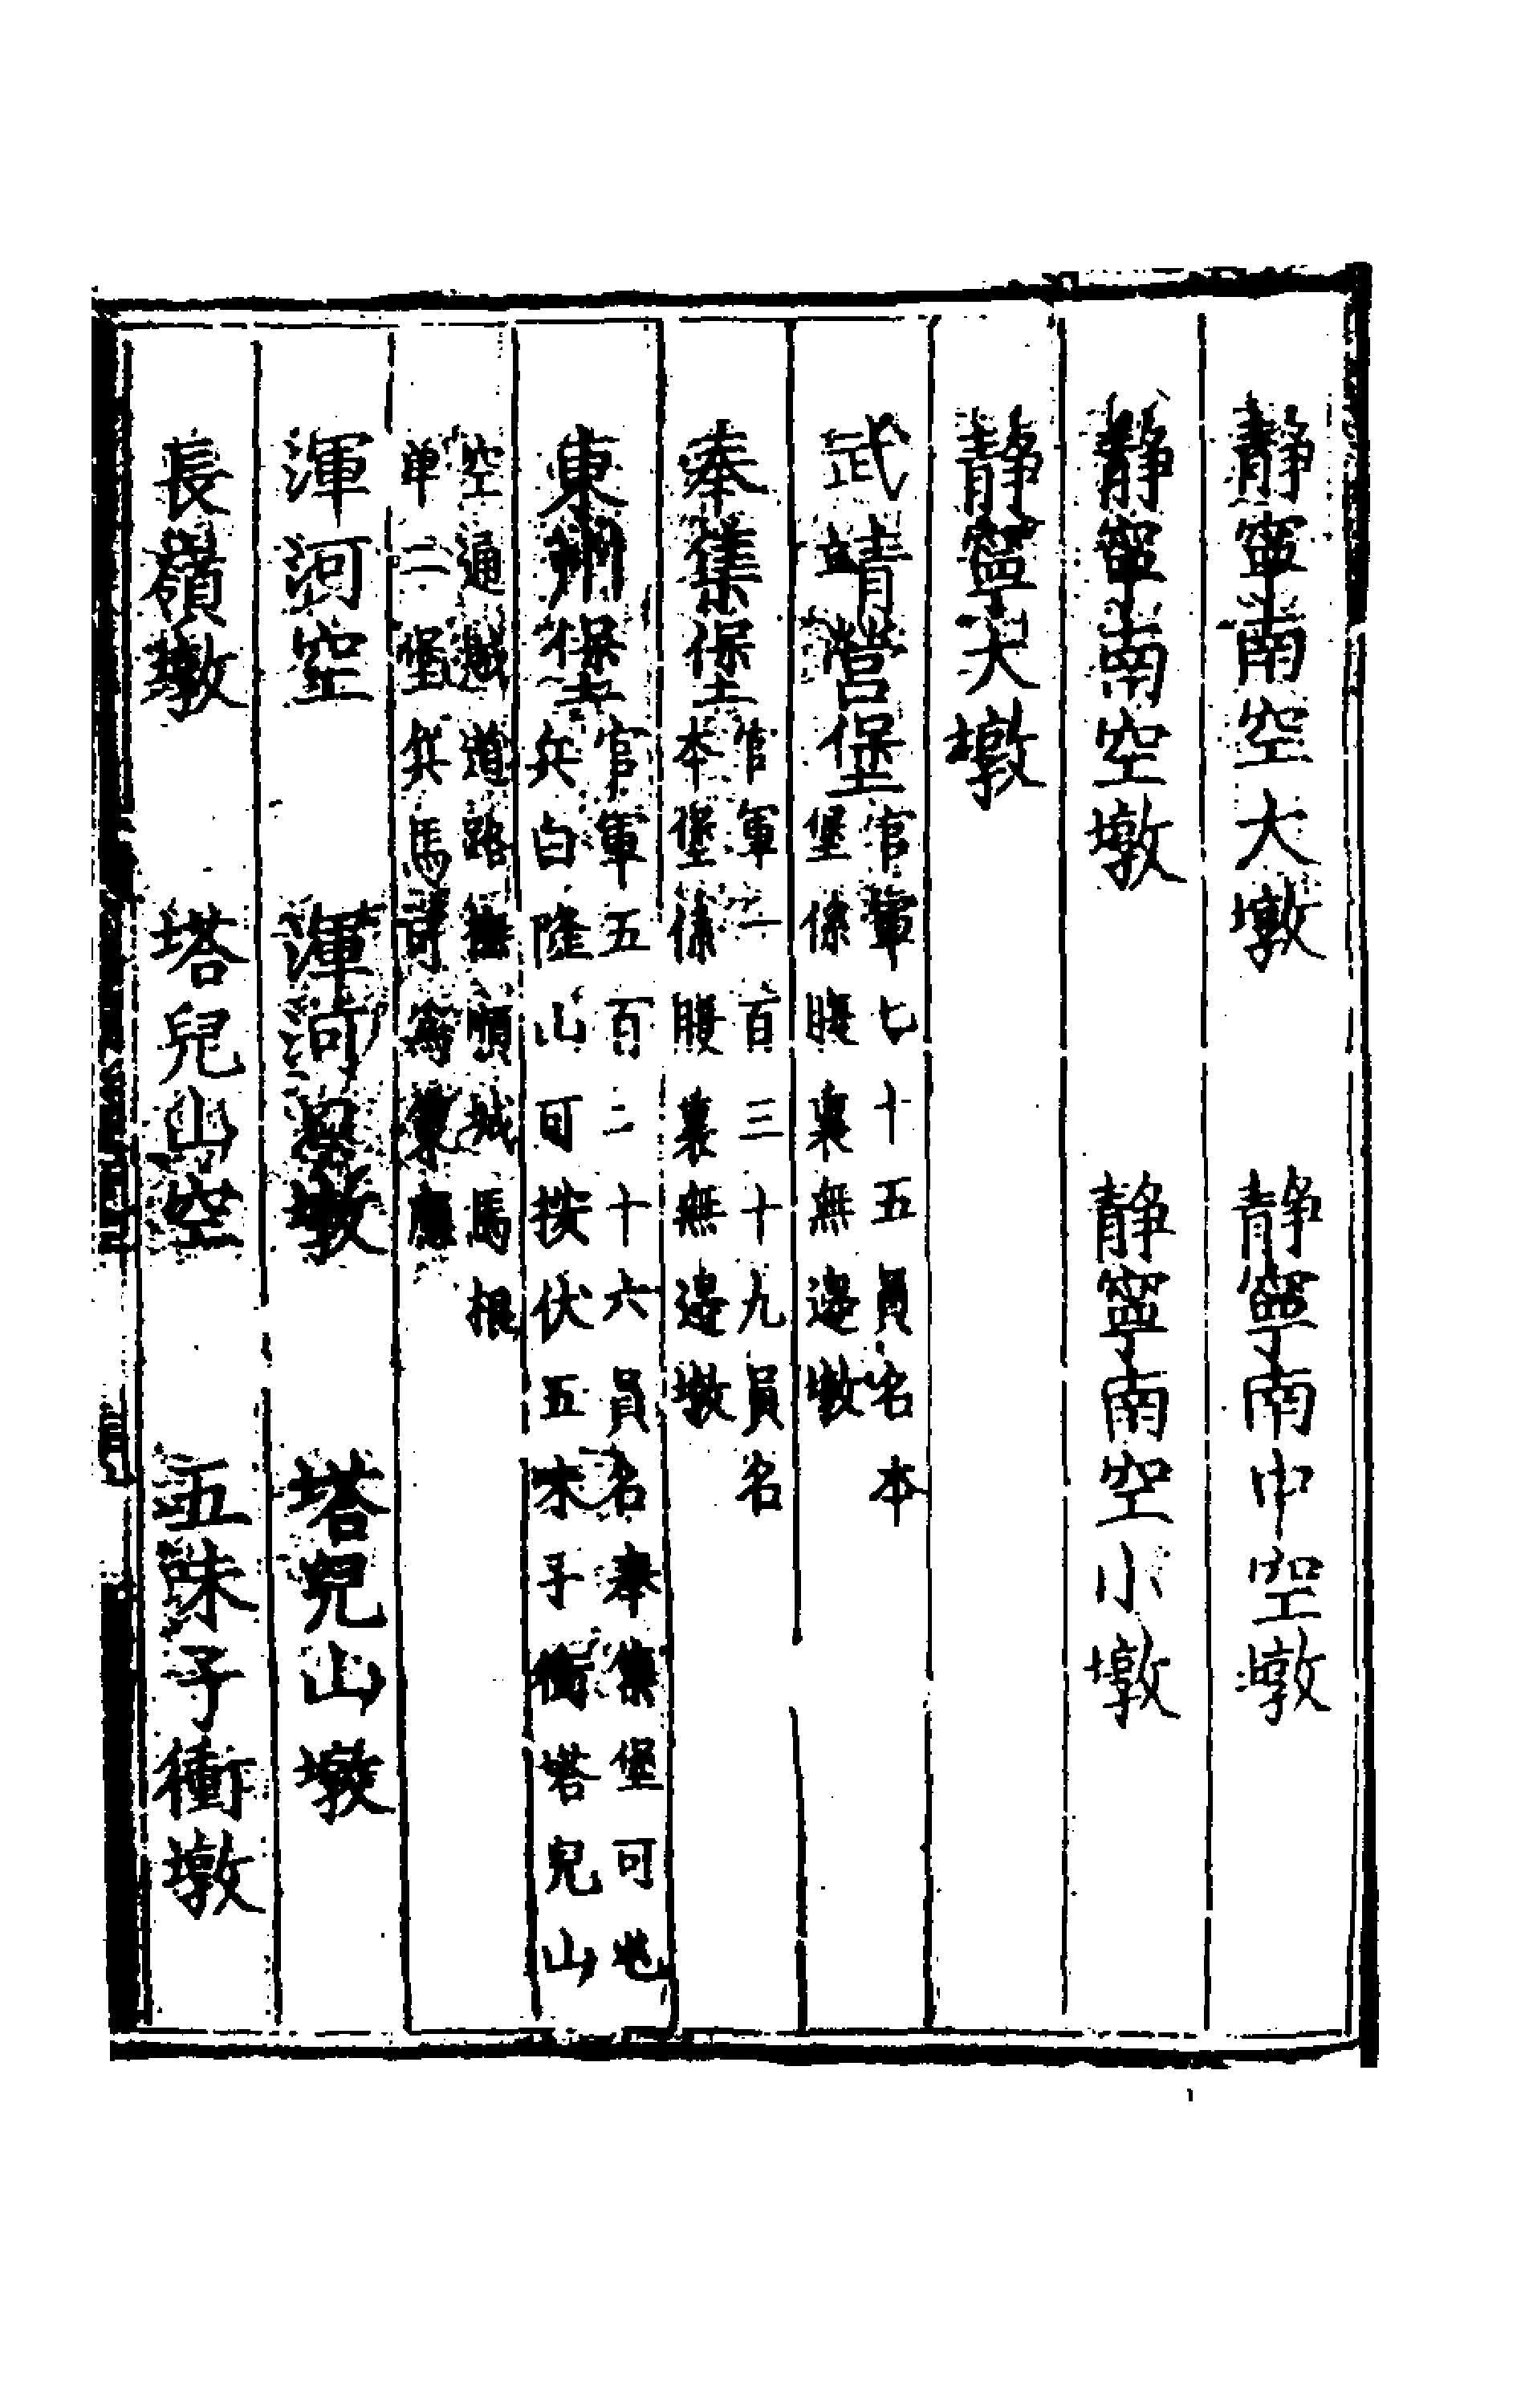 靜寧南空大墩　靜寧南中空墩
靜寧南空墩　靜寧南空小墩
靜寧大墩
武靖營堡官軍七十五員名本
堡係腹裏無邊墩
奉集堡官軍一百三十九員名
本堡係腹裏無邊墩
東州堡官軍五百二十六員名奉集堡可屯
兵白隆山可按伏五味子衝塔兒山
空通賊道路撫順城馬根
单二堡兵馬可為策應
渾河空　渾河墩　塔兒山墩
長嶺墩　塔兒山空　五味子衝墩